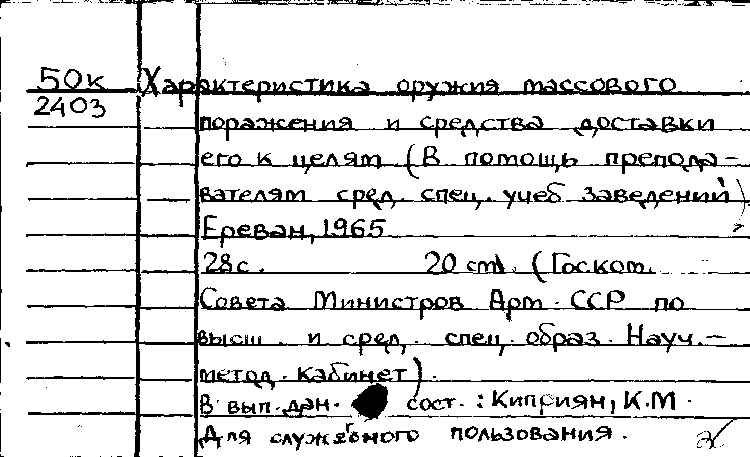 50к Характеристика оружия массового
2403
поражения и средства доставки
его к целям (В помощь препода-
вателям сред. спец. учеб. заведений)
Ереван, 1965
28с. 20 см. (Госком.
Совета Министров Арм. ССР по
высш. и сред. спец. образ. Науч.-
метод. кабинет).
В вып. дан. сост.: Киприян, К.М.
Для служебного пользования.